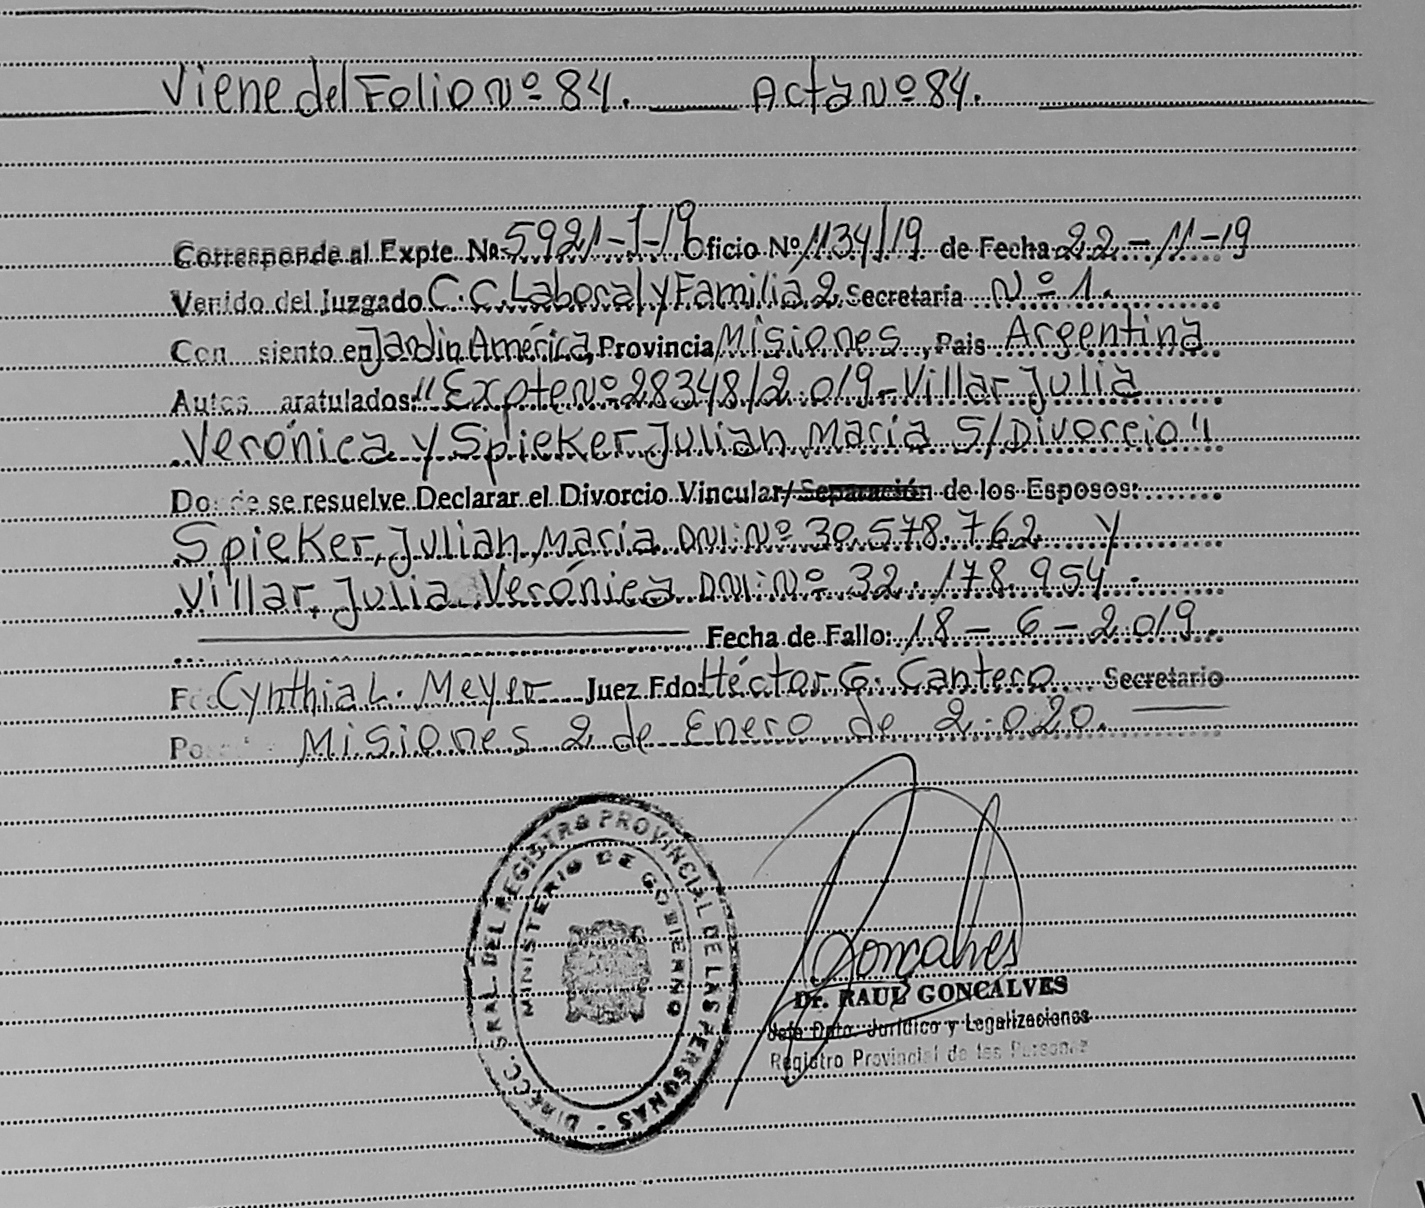 Viene del Folio Nº 84. Acta Nº 84.
Corresponde al Expte. No. 5921-1-19 Oficio Nº 1134/19 de Fecha 22-11-19
Venido del Juzgado C.C. Laboral y Familia 2 Secretaría Nº 1.
Con siento en Jardin América, Provincia Misiones, Pais Argentina
Autos aratulados: "Expte Nº 28348/2019 - Villar Julia
Verónica y Spieker Julian María S/Divorcio"
Donde se resuelve Declarar el Divorcio Vincular/Separación de los Esposos:
Spieker, Julian, María DNI: Nº 30.578.762 y
Villar, Julia Verónica DNI: Nº 32.178.954.
Fecha de Fallo: 18-6-2019.
Fdo Cynthia L. Meyer Juez Fdo Héctor G. Cantero Secretario
Misiones 2 de Enero de 2.020.
DIRECC. GRAL. DEL REGISTRO PROVINCIAL DE LAS PERSONAS -
MINISTERIO DE GOBIERNO
Goncalves
Dr. RAUL GONCALVES
Jefe Dpto. Jurídico y Legalizaciones
Registro Provincial de las Personas